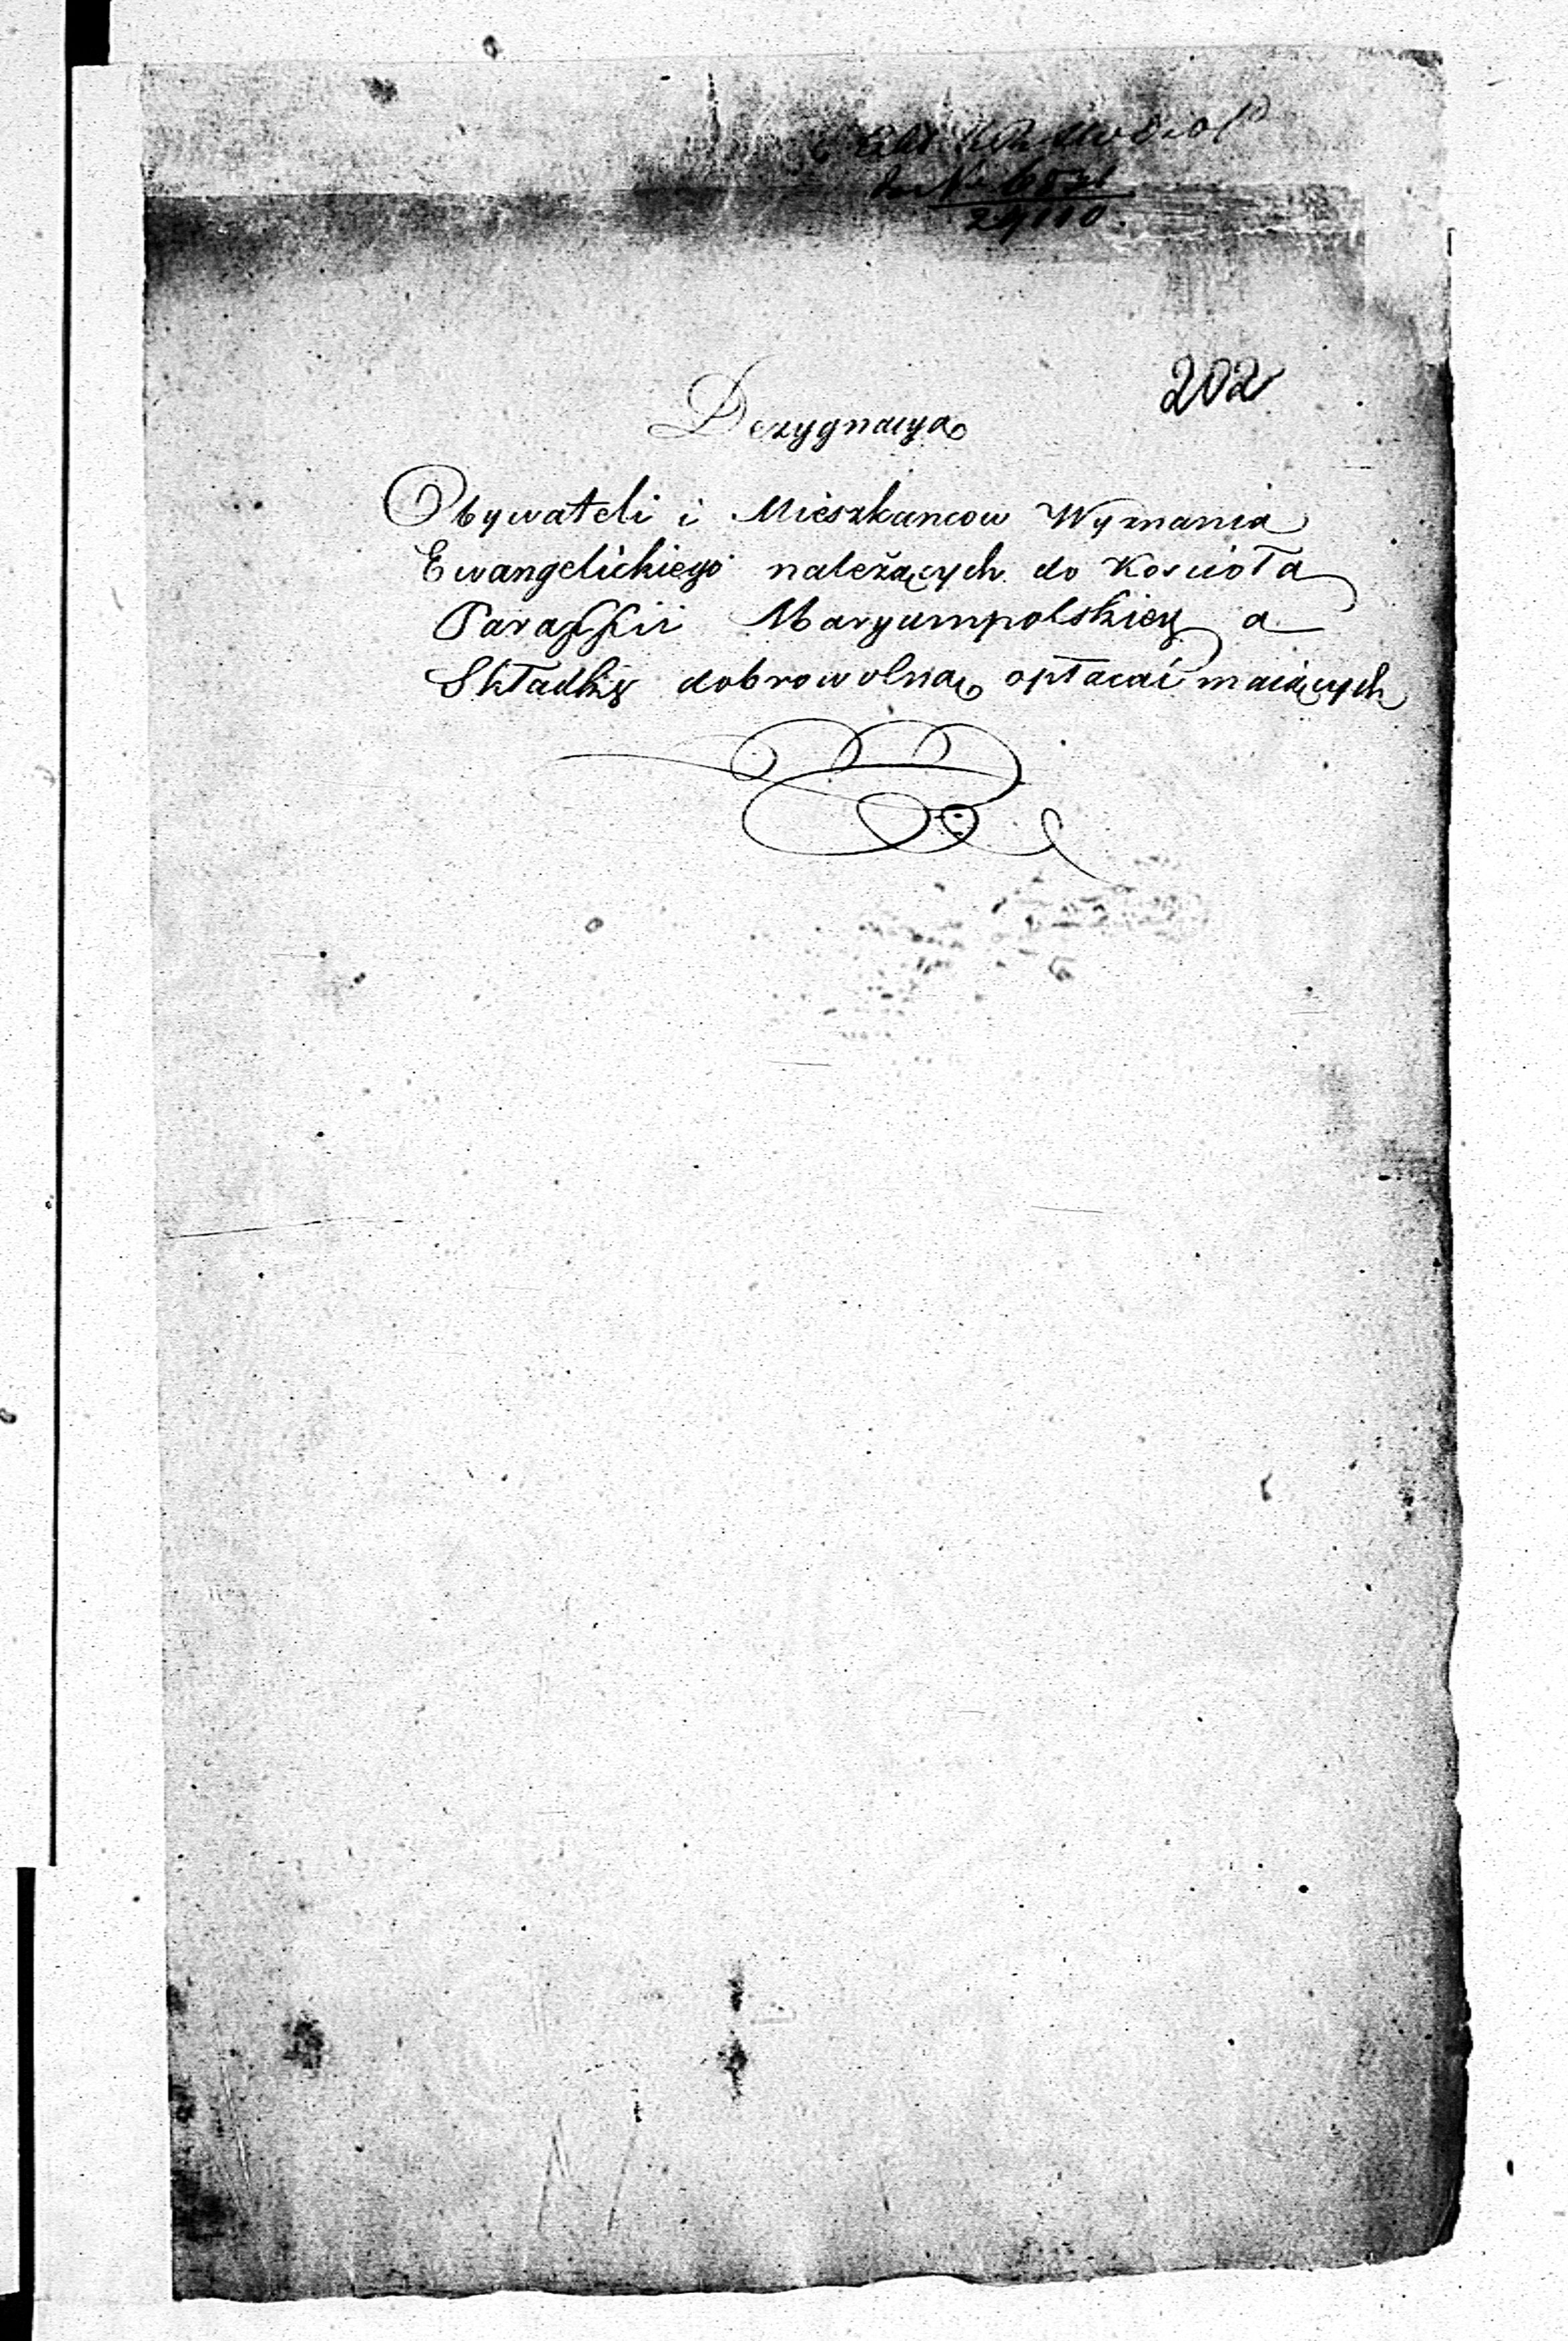 do No
29110.
202
Dezygnacya
Obywateli i Mieszkancow Wyznania
Ewangelickiego należących do Koscioła
Paraffii Maryampolskiey a
Składkę dobrowolną opłacać maiących